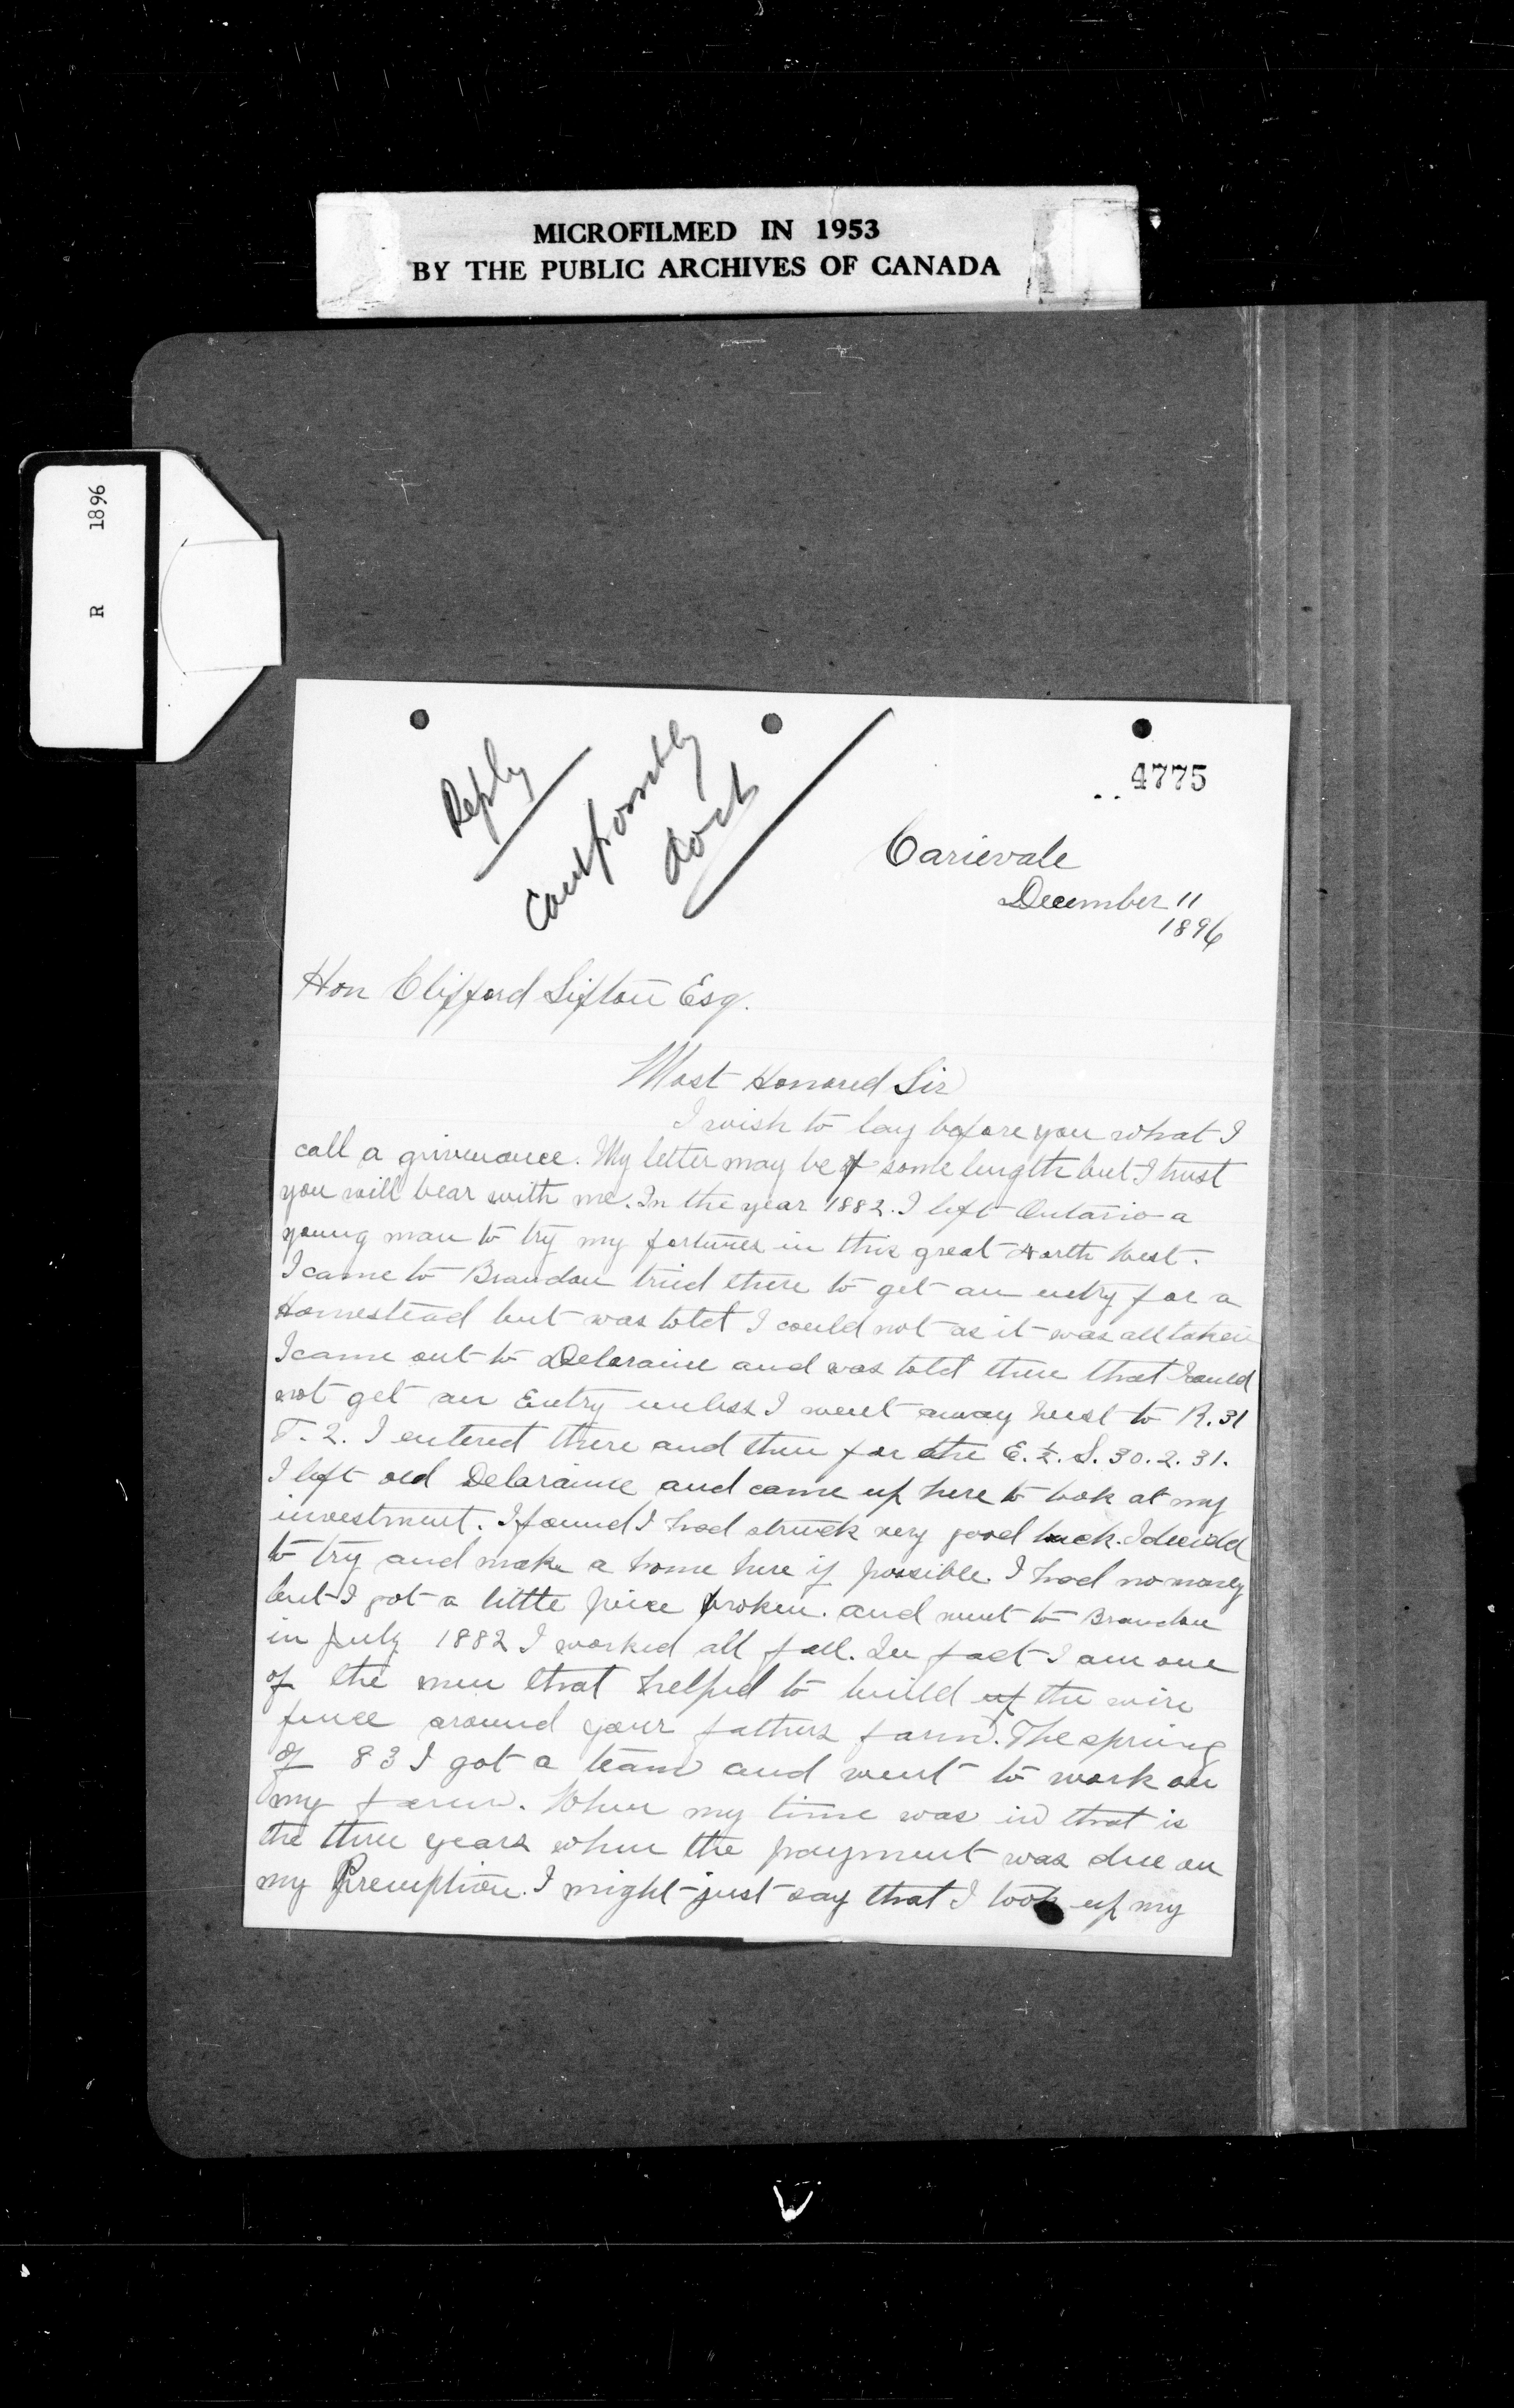 MICROFILMED IN 1953
BY THE PUBLIC ARCHIVES OF CANADA
R 1896
4775
Reply
Carievale
December 11
1896
Hon Clifford Sifton Esq.
Most Honored Sir
I wish to lay before you what I
call a grivenance. My letter may be of some length but I trust
you will bear with me. In the year 1882. I left Ontario a
young man to try my fortunes in this great North West.
I came to Brandon tried there to get an entry for a
Homestead but was told I could not as it was all taken
I came out to Deloraine and was told there that I could
not get an Entry unless I went away West to R. 31
T. 2. I entered there and then for the E. ½. S. 30. 2. 31.
I left old Deloraine and came up here to look at my
investment. I found I had struck very good luck. I decided
to try and make a home here if possible. I had no money
but I got a little piece broken. and went to Brandon
in July 1882 I worked all fall. In fact I am one
of the men that helped to build up the wire
fence around your fathers farm. The spring
of 83 I got a team and went to work on
my farm. When my time was in that is
the three years when the payment was due on
my Preemption. I might just say that I took up my